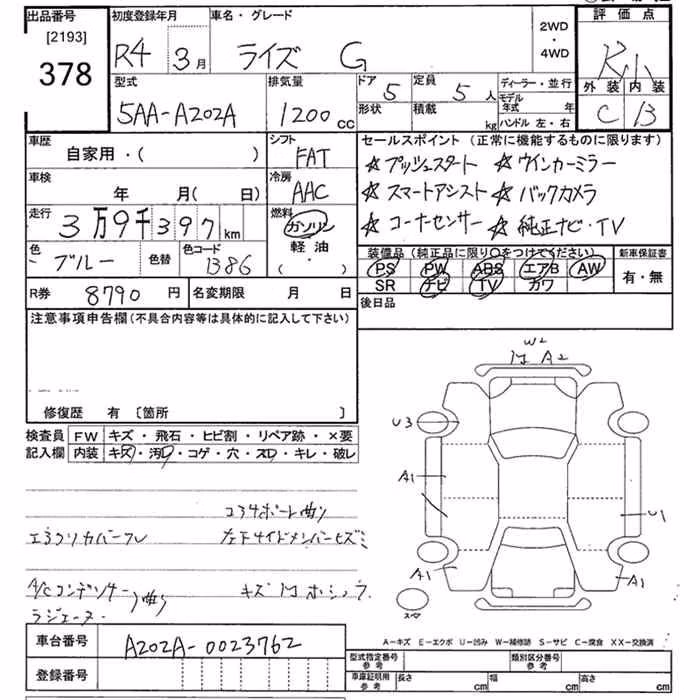 出品番号
[2193]
378
初度登録年月
R4 3月
車名・グレード
ライズ G
2WD
・
4WD
評価点
外装 内装
C B
型式
5AA-A202A
排気量
1200cc
ドア 5
形状
定員 5人
積載 kg
ディーラー・並行
モデル年式 年
ハンドル 左・右
車歴
自家用・( )
シフト
FAT
車検
年 月( 日)
冷房
AAC
走行
3万9千397km
燃料
ガソリン
軽油
( ・ )
色
ブルー
色替
色コード
B86
セールスポイント (正常に機能するものに限ります)
☆プッシュスタート ☆ウインカーミラー
☆スマートアシスト ☆バックカメラ
☆コーナーセンサー ☆純正ナビ・TV
装備品 (純正品に限り〇をつけてください)
PS PW ABS エアB AW
SR ナビ TV カワ
新車保証書
有・無
R券 8790円
名変期限 月 日
後日品
注意事項申告欄(不具合内容等は具体的に記入して下さい)
修復歴 有〔箇所 〕
検査員記入欄
FW キズ・飛石・ヒビ割・リペア跡・×要
内装 キズ・汚レ・コゲ・穴・スレ・キレ・破レ
コアサポート曲り
左下サイドメンバーキズミ
A/Cコンデンサー
曲り
ラジエーター
W2
A2
U3
A1
U1
A1
A1
スペア
A-キズ E-エクボ U-凹み W-補修跡 S-サビ C-腐食 XX-交換済
車台番号 A202A-0023762
登録番号
型式指定番号 参考
類別区分番号 参考
車庫証明用 参考
長さ cm 幅 cm 高さ cm